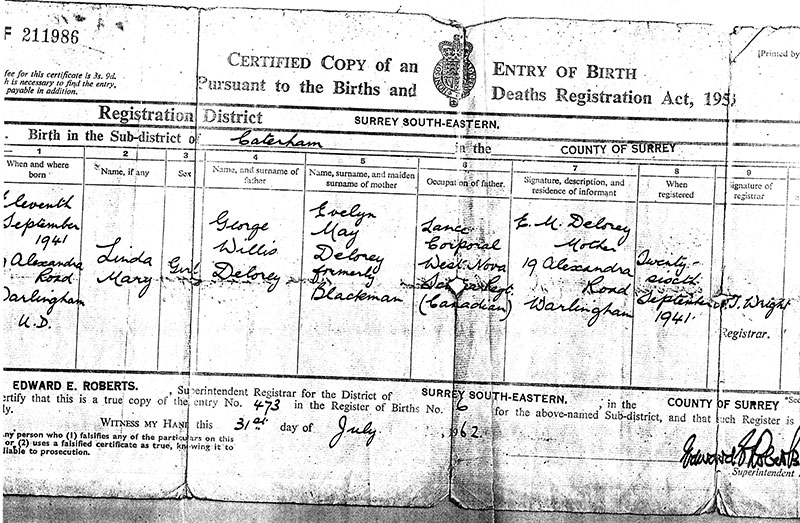 F 211986
CERTIFIED COPY of an ENTRY OF BIRTH
[Printed by
fee for this certificate is 3s. 9d.
h is necessary to find the entry,
payable in addition.
Pursuant to the Births and Deaths Registration Act, 195
Registration District SURREY SOUTH-EASTERN.
. Birth in the Sub-district of Caterham in the COUNTY OF SURREY
1 2 3 4 5 6 7 8 9
When and where born
Name, if any
Sex
Name, and surname of father
Name, surname, and maiden surname of mother
Occupation of father.
Signature, description, and residence of informant
When registered
Signature of registrar
Eleventh
September
1941
Alexandra
Road
Warlingham
U.D.
Linda
Mary
Girl
George
Willis
Delorey
Evelyn
May
Delorey
formerly
Blackman
Lance
Corporal
West Nova
Regt.
(Canadian)
E. M. Delorey
Mother
19 Alexandra
Road
Warlingham
Twenty-
sixth
September
1941
J. Wright
Registrar.
EDWARD E. ROBERTS. , Superintendent Registrar for the District of SURREY SOUTH-EASTERN. , in the COUNTY OF SURREY
ertify that this is a true copy of the entry No. 473 in the Register of Births No. 6 for the above-named Sub-district, and that such Register is
ly.
WITNESS MY HAND this 31st day of July , 1962.
ny person who (1) falsifies any of the particulars on this
or (2) uses a falsified certificate as true, knowing it to
liable to prosecution.
Edward E Roberts
Superintendent